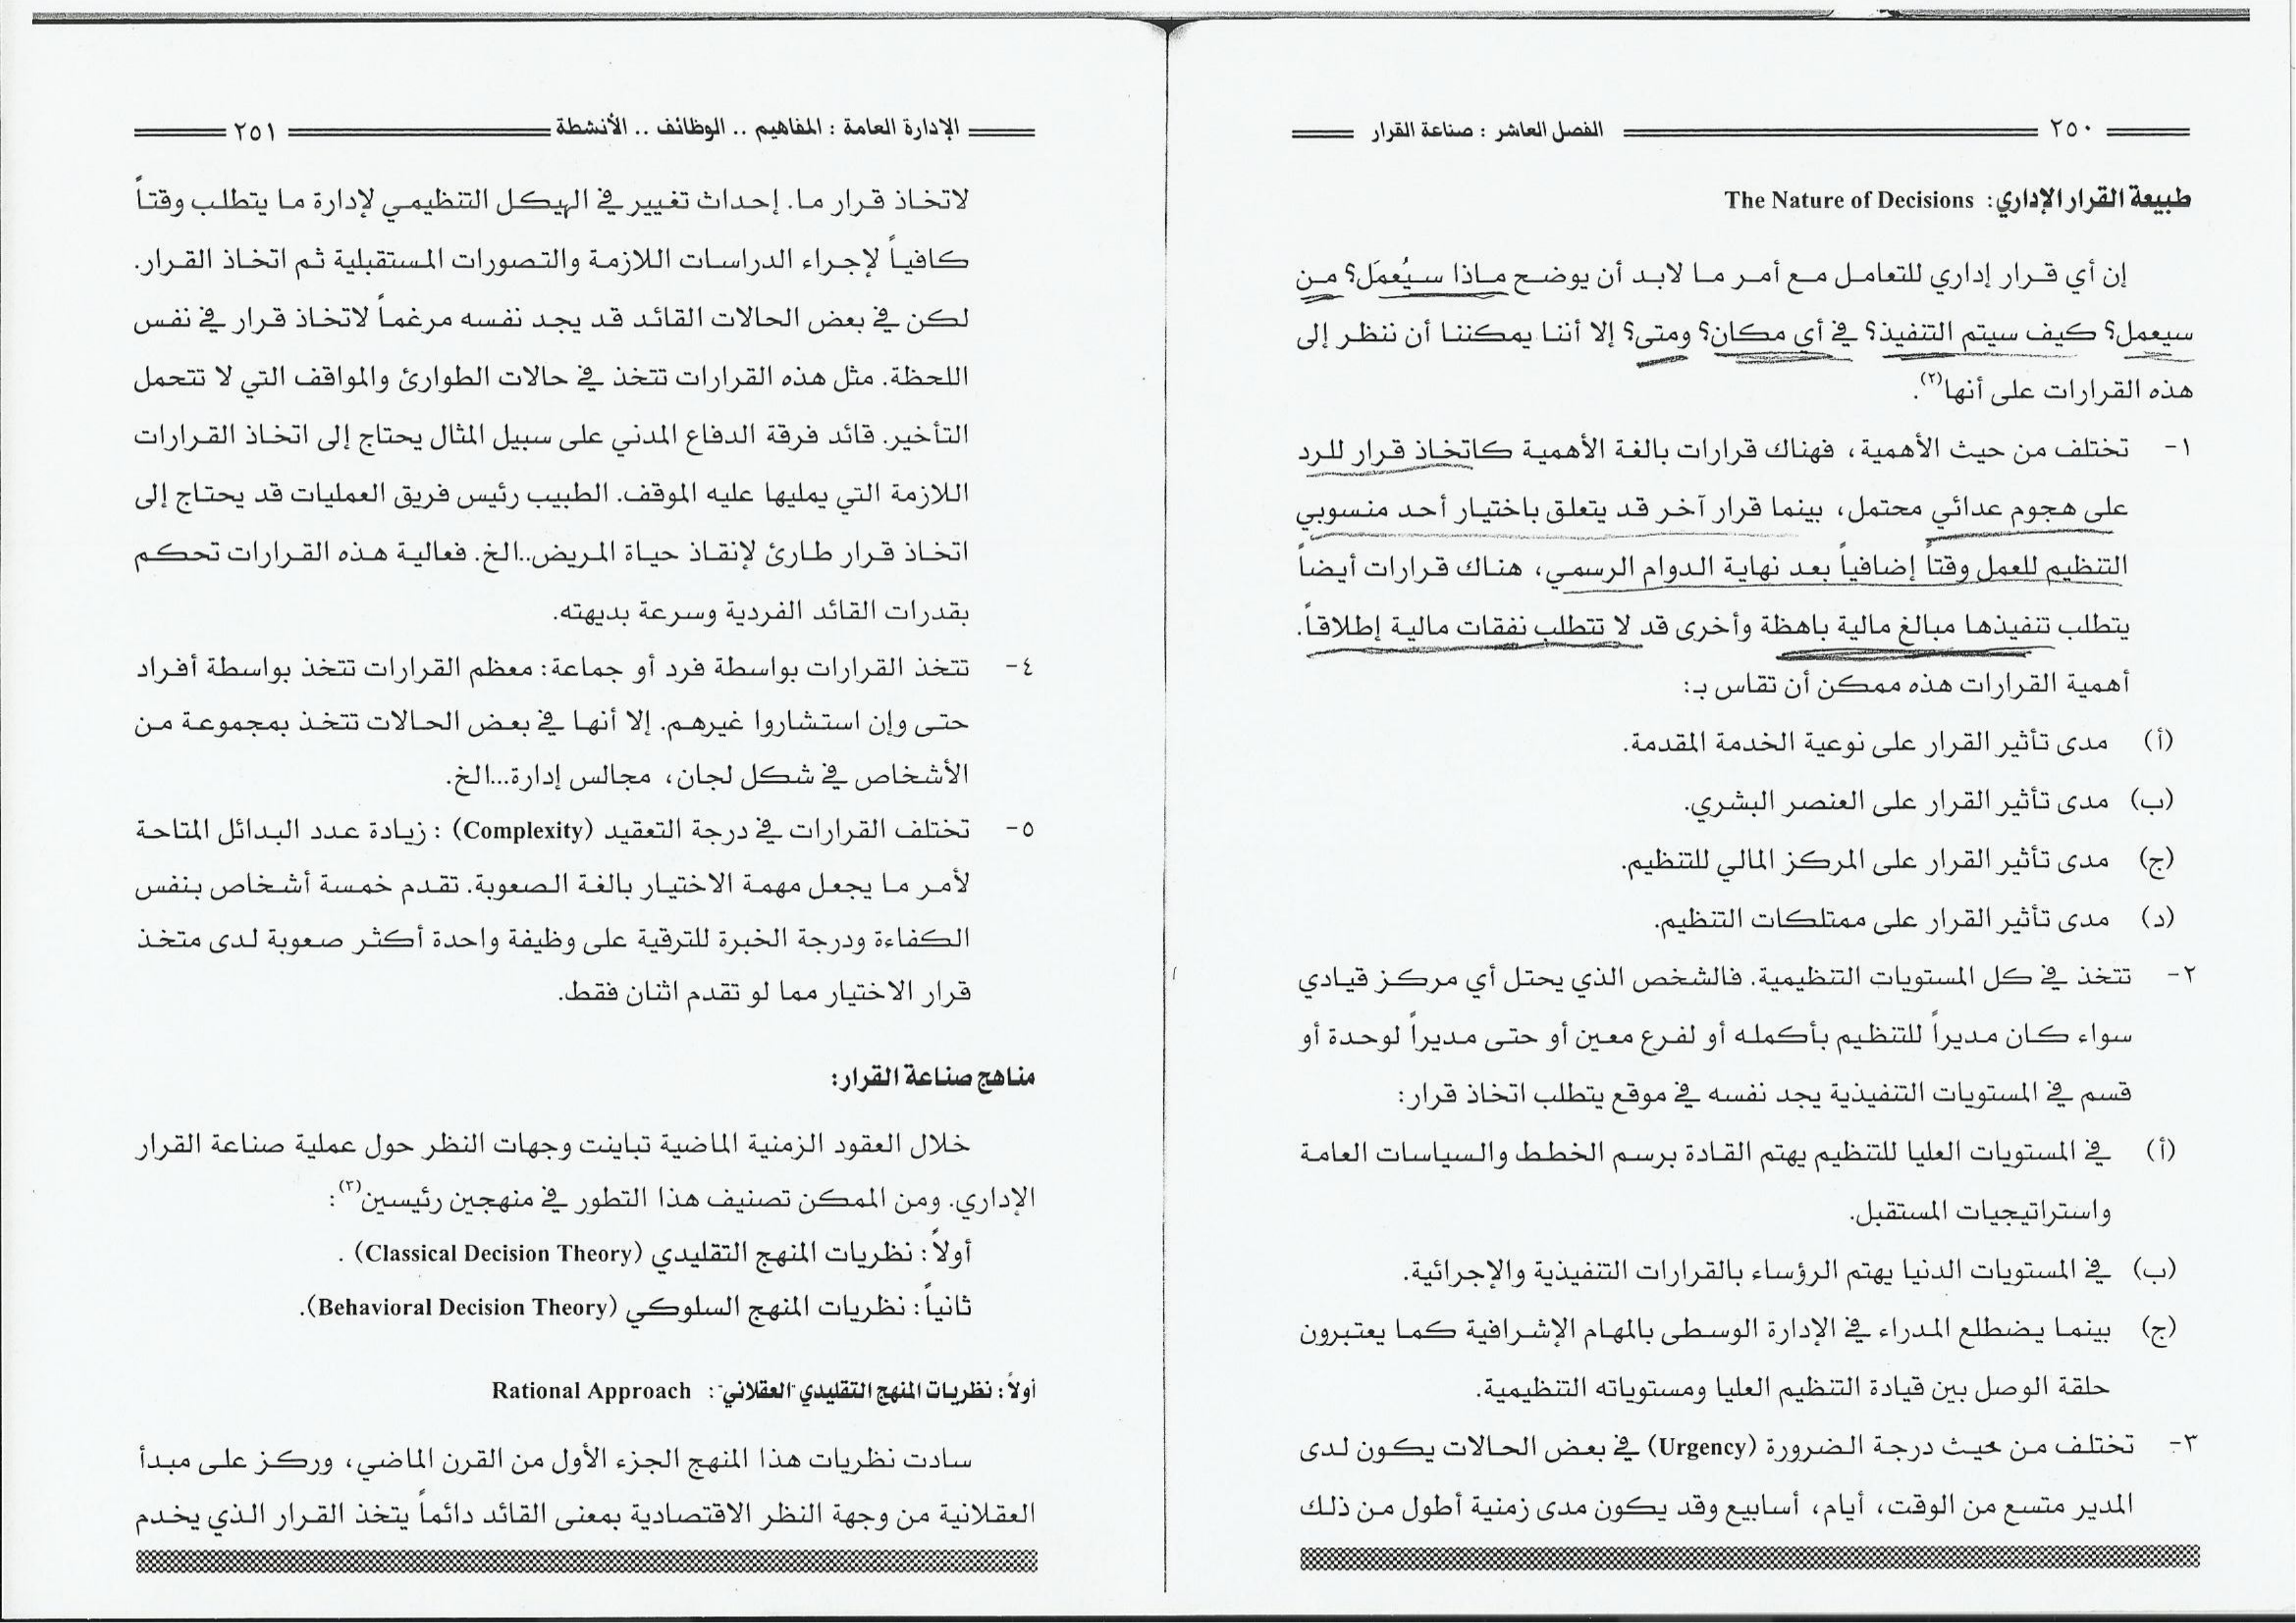 ٢٥٠ الفصل العاشر : صناعة القرار
طبيعة القرار الإداري: The Nature of Decisions
إن أي قرار إداري للتعامل مع أمر ما لابد أن يوضح ماذا سيُعمَل؟ من
سيعمل؟ كيف سيتم التنفيذ؟ في أي مكان؟ ومتى؟ إلا أننا يمكننا أن ننظر إلى
هذه القرارات على أنها(٢).
١- تختلف من حيث الأهمية، فهناك قرارات بالغة الأهمية كاتخاذ قرار للرد
على هجوم عدائي محتمل، بينما قرار آخر قد يتعلق باختيار أحد منسوبي
التنظيم للعمل وقتاً إضافياً بعد نهاية الدوام الرسمي، هناك قرارات أيضاً
يتطلب تنفيذها مبالغ مالية باهظة وأخرى قد لا تتطلب نفقات مالية إطلاقاً.
أهمية القرارات هذه ممكن أن تقاس بـ:
(أ) مدى تأثير القرار على نوعية الخدمة المقدمة.
(ب) مدى تأثير القرار على العنصر البشري.
(ج) مدى تأثير القرار على المركز المالي للتنظيم.
(د) مدى تأثير القرار على ممتلكات التنظيم.
٢- تتخذ في كل المستويات التنظيمية. فالشخص الذي يحتل أي مركز قيادي
سواء كان مديراً للتنظيم بأكمله أو لفرع معين أو حتى مديراً لوحدة أو
قسم في المستويات التنفيذية يجد نفسه في موقع يتطلب اتخاذ قرار:
(أ) في المستويات العليا للتنظيم يهتم القادة برسم الخطط والسياسات العامة
واستراتيجيات المستقبل.
(ب) في المستويات الدنيا يهتم الرؤساء بالقرارات التنفيذية والإجرائية.
(ج) بينما يضطلع المدراء في الإدارة الوسطى بالمهام الإشرافية كما يعتبرون
حلقة الوصل بين قيادة التنظيم العليا ومستوياته التنظيمية.
٣- تختلف من حيث درجة الضرورة (Urgency) في بعض الحالات يكون لدى
المدير متسع من الوقت، أيام، أسابيع وقد يكون مدى زمنية أطول من ذلك
الإدارة العامة : المفاهيم .. الوظائف .. الأنشطة ٢٥١
لاتخاذ قرار ما. إحداث تغيير في الهيكل التنظيمي لإدارة ما يتطلب وقتاً
كافياً لإجراء الدراسات اللازمة والتصورات المستقبلية ثم اتخاذ القرار.
لكن في بعض الحالات القائد قد يجد نفسه مرغماً لاتخاذ قرار في نفس
اللحظة. مثل هذه القرارات تتخذ في حالات الطوارئ والمواقف التي لا تتحمل
التأخير. قائد فرقة الدفاع المدني على سبيل المثال يحتاج إلى اتخاذ القرارات
اللازمة التي يمليها عليه الموقف. الطبيب رئيس فريق العمليات قد يحتاج إلى
اتخاذ قرار طارئ لإنقاذ حياة المريض..الخ. فعالية هذه القرارات تحكم
بقدرات القائد الفردية وسرعة بديهته.
٤- تتخذ القرارات بواسطة فرد أو جماعة: معظم القرارات تتخذ بواسطة أفراد
حتى وإن استشاروا غيرهم. إلا أنها في بعض الحالات تتخذ بمجموعة من
الأشخاص في شكل لجان، مجالس إدارة...الخ.
٥- تختلف القرارات في درجة التعقيد (Complexity) : زيادة عدد البدائل المتاحة
لأمر ما يجعل مهمة الاختيار بالغة الصعوبة. تقدم خمسة أشخاص بنفس
الكفاءة ودرجة الخبرة للترقية على وظيفة واحدة أكثر صعوبة لدى متخذ
قرار الاختيار مما لو تقدم اثنان فقط.
مناهج صناعة القرار:
خلال العقود الزمنية الماضية تباينت وجهات النظر حول عملية صناعة القرار
الإداري. ومن الممكن تصنيف هذا التطور في منهجين رئيسين(٣):
أولاً: نظريات المنهج التقليدي (Classical Decision Theory) .
ثانياً: نظريات المنهج السلوكي (Behavioral Decision Theory).
أولاً: نظريات المنهج التقليدي "العقلاني": Rational Approach
سادت نظريات هذا المنهج الجزء الأول من القرن الماضي، وركز على مبدأ
العقلانية من وجهة النظر الاقتصادية بمعنى القائد دائماً يتخذ القرار الذي يخدم